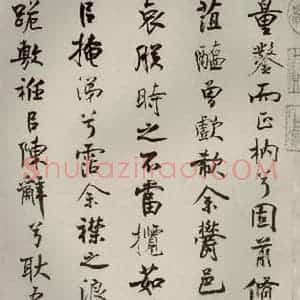 量鑿而正枘兮固前脩
菹醢曾歔欷余鬱邑
哀朕時之不當攬茹
以掩涕兮霑余襟之浪
跪敷衽以陳辭兮耿吾
Shufaziliao.com